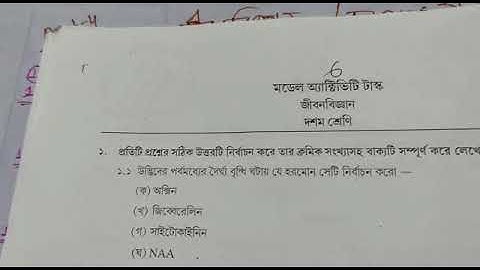 6
মডেল অ্যাক্টিভিটি টাস্ক
জীবনবিজ্ঞান
দশম শ্রেণি
১. প্রতিটি প্রশ্নের সঠিক উত্তরটি নির্বাচন করে তার ক্রমিক সংখ্যাসহ বাক্যটি সম্পূর্ণ করে লেখো
১.১ উদ্ভিদের পর্বমধ্যের দৈর্ঘ্য বৃদ্ধি ঘটায় যে হরমোন সেটি নির্বাচন করো —
(ক) অক্সিন
(খ) জিব্বেরেলিন
(গ) সাইটোকাইনিন
(ঘ) NAA